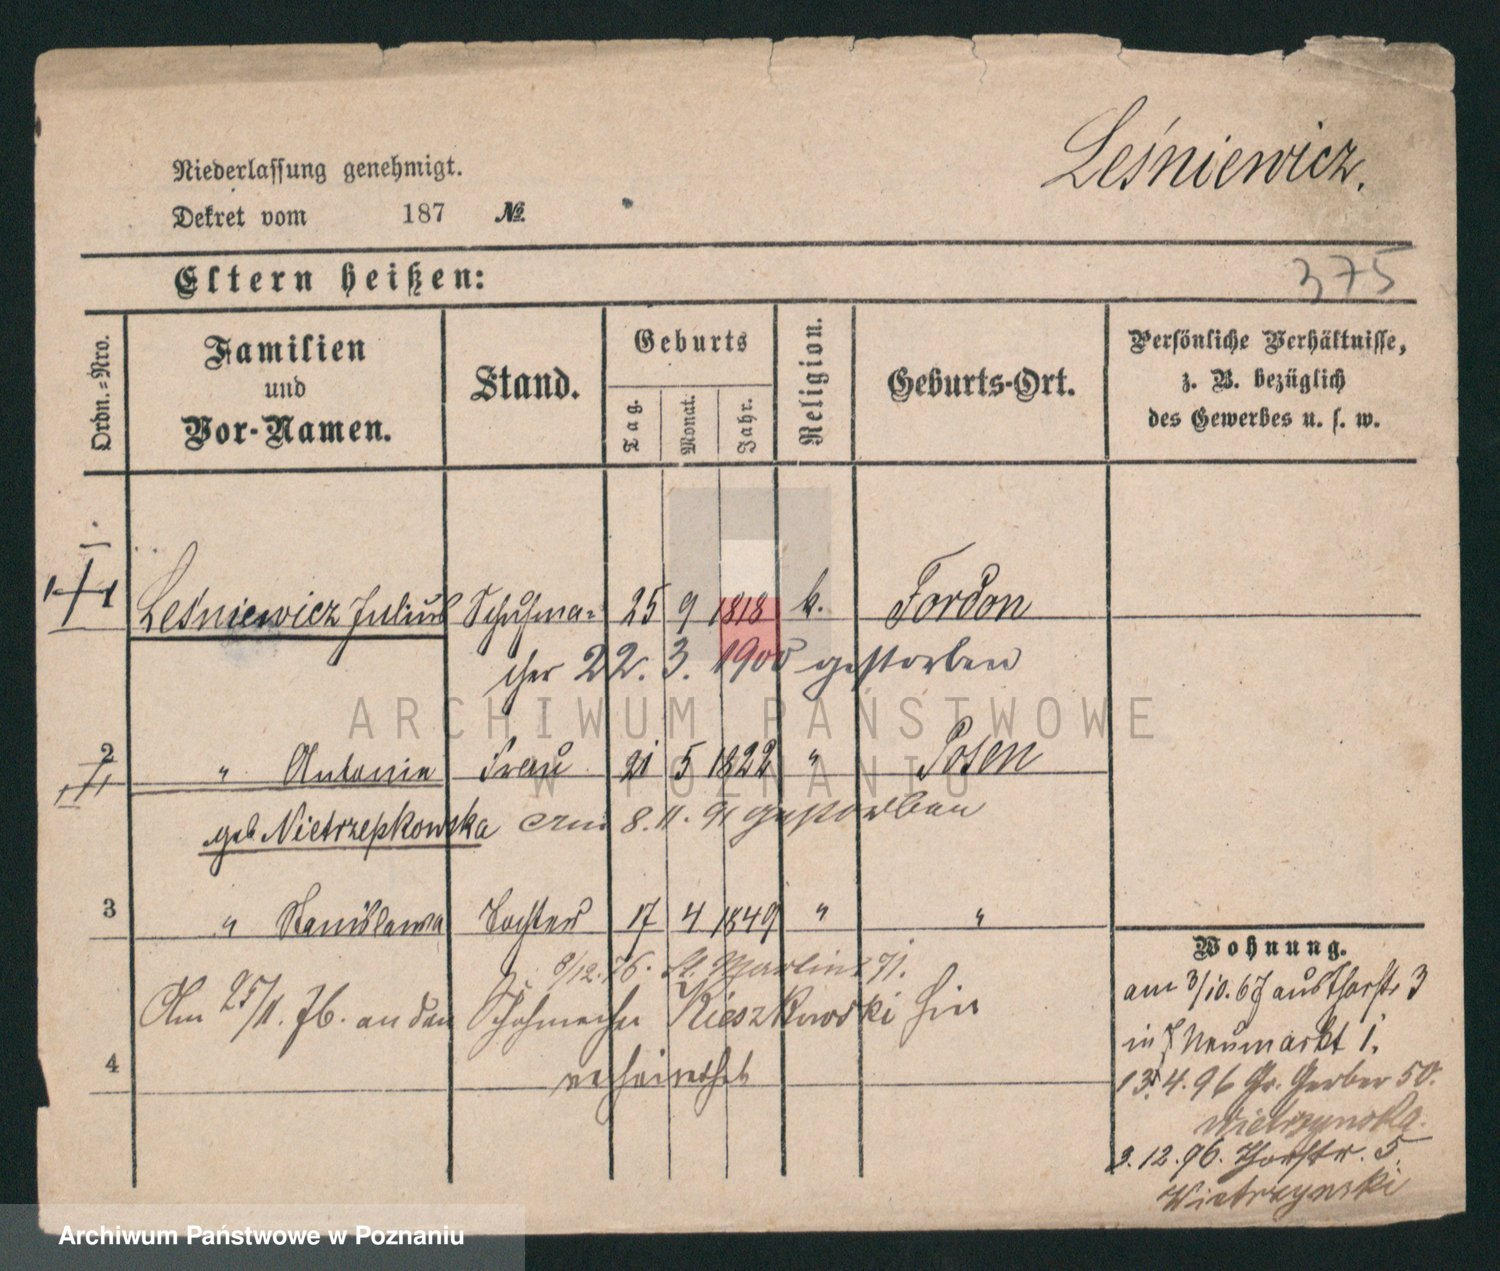 Leśniewicz.
Niederlassung genehmigt.
Dekret vom 187 №
375
Eltern heißen:
Ordn.-Nro.
Familien und Vor-Namen.
Stand.
Geburts
Tag. Monat. Jahr.
Religion.
Geburts-Ort.
Persönliche Verhältnisse,
z. B. bezüglich
des Gewerbes u. s. w.
1.
Leśniewicz Julius Schuhma= 25 9 1818 k. Fordon
cher 22. 3. 1900 gestorben
2 " Antonie Frau 21 5 1822 " Posen
geb Nietrzepkowska am 8. 11. 91 gestorben
3 " Stanislawa Tochter 17 4 1849 " "
8/12. 76. St. Martin 71.
Am 25/11. 76. an den Schuhmacher Kieszkowski hier
4 verheirathet
Wohnung.
am 3/10. 67 aus Thorstr 3
in Neumarkt 1.
13. 4. 96 Gr. Gerber 50.
3. 12. 96. Thorstr. 5
Wietrzynski
ARCHIWUM PAŃSTWOWE
W POZNANIU
Archiwum Państwowe w Poznaniu